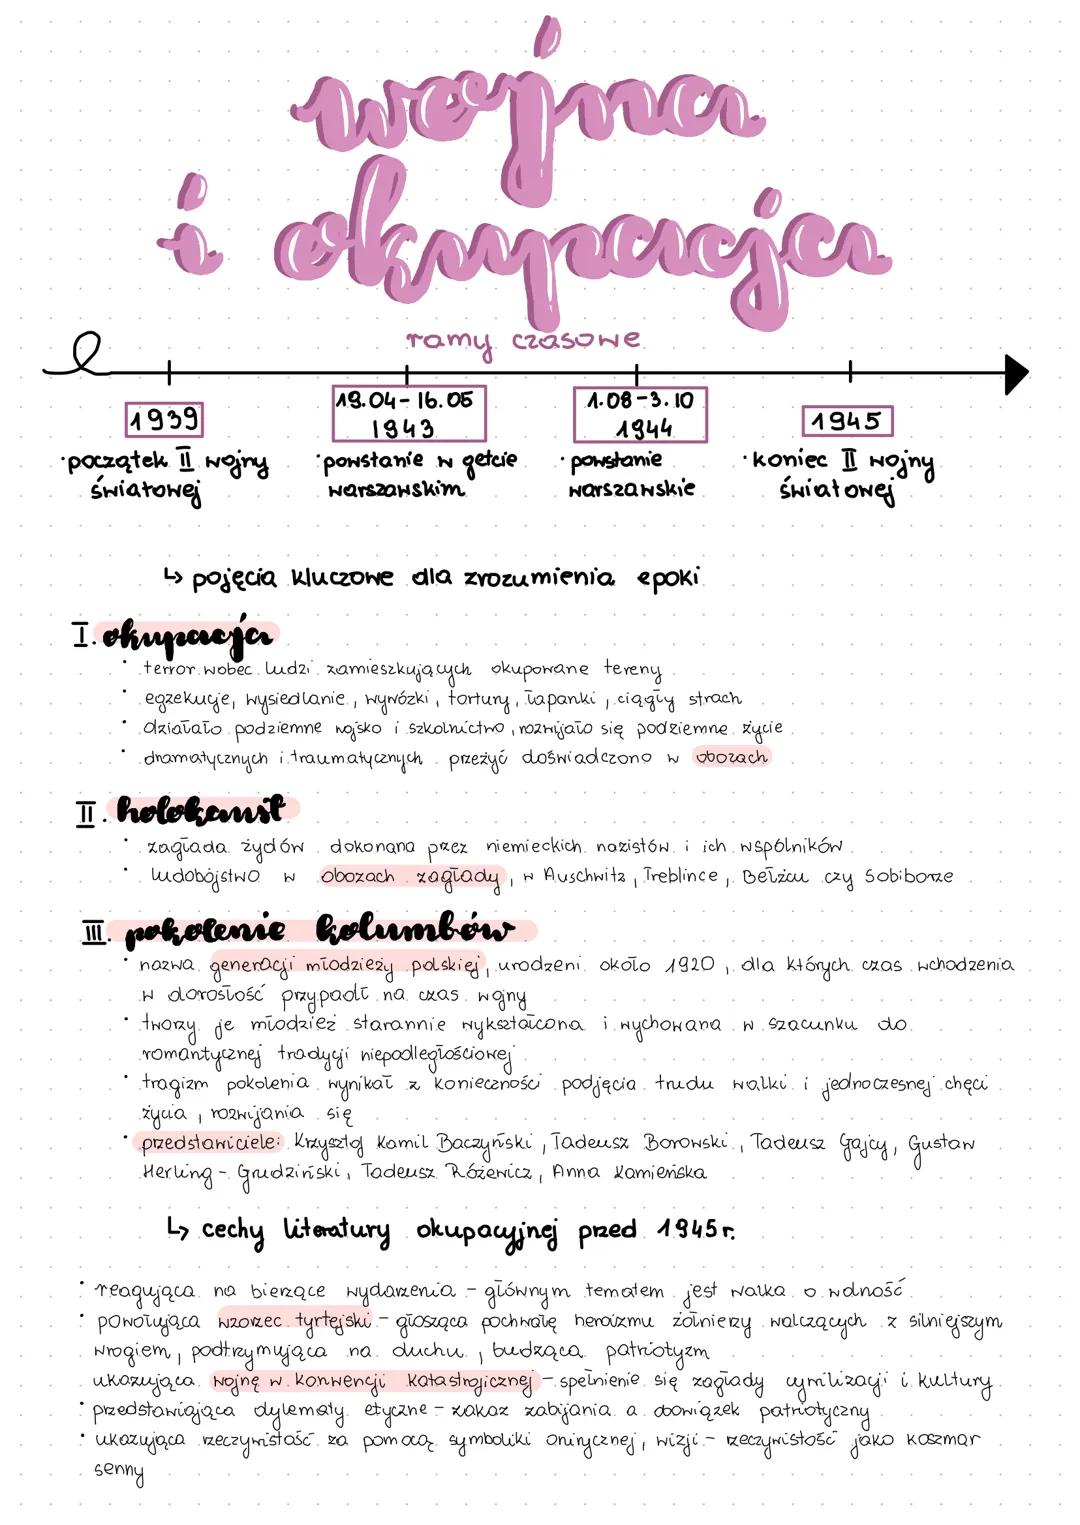 wojna
i okupacja
ramy czasowe
1939
19.04-16.05
1943
1.08-3.10
1944
1945
·początek II wojny
światowej
·powstanie w getcie
warszawskim
·powstanie
warszawskie
·koniec II wojny
światowej
↳ pojęcia kluczowe dla zrozumienia epoki
I. okupacja
· terror wobec ludzi zamieszkujących okupowane tereny
· egzekucje, wysiedlanie, wywózki, tortury, łapanki, ciągły strach
· działało podziemne wojsko i szkolnictwo, rozwijało się podziemne życie
· dramatycznych i traumatycznych przeżyć doświadczono w obozach
II. holokaust
· zagłada żydów dokonana przez niemieckich nazistów i ich wspólników
· ludobójstwo w obozach zagłady, w Auschwitz, Treblince, Bełżcu czy Sobiborze
III. pokolenie kolumbów
· nazwa generacji młodzieży polskiej, urodzeni około 1920, dla których czas wchodzenia
w dorosłość przypadł na czas wojny
· tworzy je młodzież starannie wykształcona i wychowana w szacunku do
romantycznej tradycji niepodległościowej
· tragizm pokolenia wynikał z konieczności podjęcia trudu walki i jednoczesnej chęci
życia, rozwijania się
· przedstawiciele: Krzysztof Kamil Baczyński, Tadeusz Borowski, Tadeusz Gajcy, Gustaw
Herling-Grudziński, Tadeusz Różewicz, Anna Kamieńska
↳ cechy literatury okupacyjnej przed 1945r.
· reagująca na bieżące wydarzenia - głównym tematem jest walka o wolność
· powołująca wzorzec tyrtejski - głosząca pochwałę heroizmu żołnierzy walczących z silniejszym
wrogiem, podtrzymująca na duchu, budząca patriotyzm
ukazująca wojnę w konwencji katastroficznej - spełnienie się zagłady cywilizacji i kultury
· przedstawiająca dylematy etyczne - zakaz zabijania a obowiązek patriotyczny
· ukazująca rzeczywistość za pomocą symboliki onirycznej, wizji - rzeczywistość jako koszmar
senny